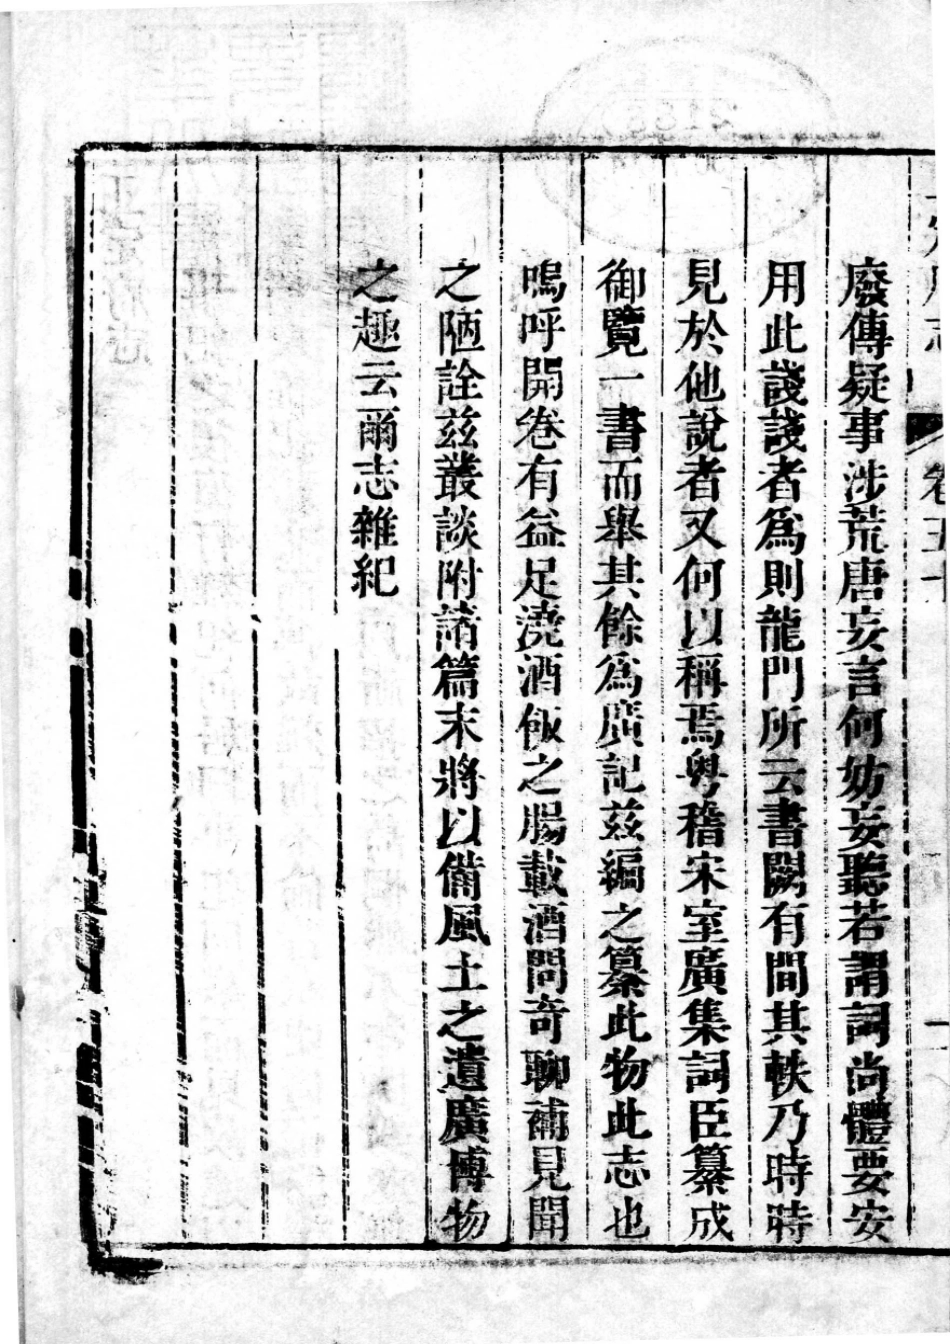 廢傳疑事涉荒唐妄言何妨妄聽若謂詞尚體要安
用此諓諓者爲則龍門所云書闕有間其軼乃時時
見於他說者又何以稱焉粤稽宋室廣集詞臣纂成
御覽一書而舉其餘爲廣記茲編之纂此物此志也
嗚呼開卷有益足澆酒飯之腸載酒問奇聊補見聞
之陋詮茲叢談附諸篇末將以備風土之遺廣博物
之趣云爾志雜紀